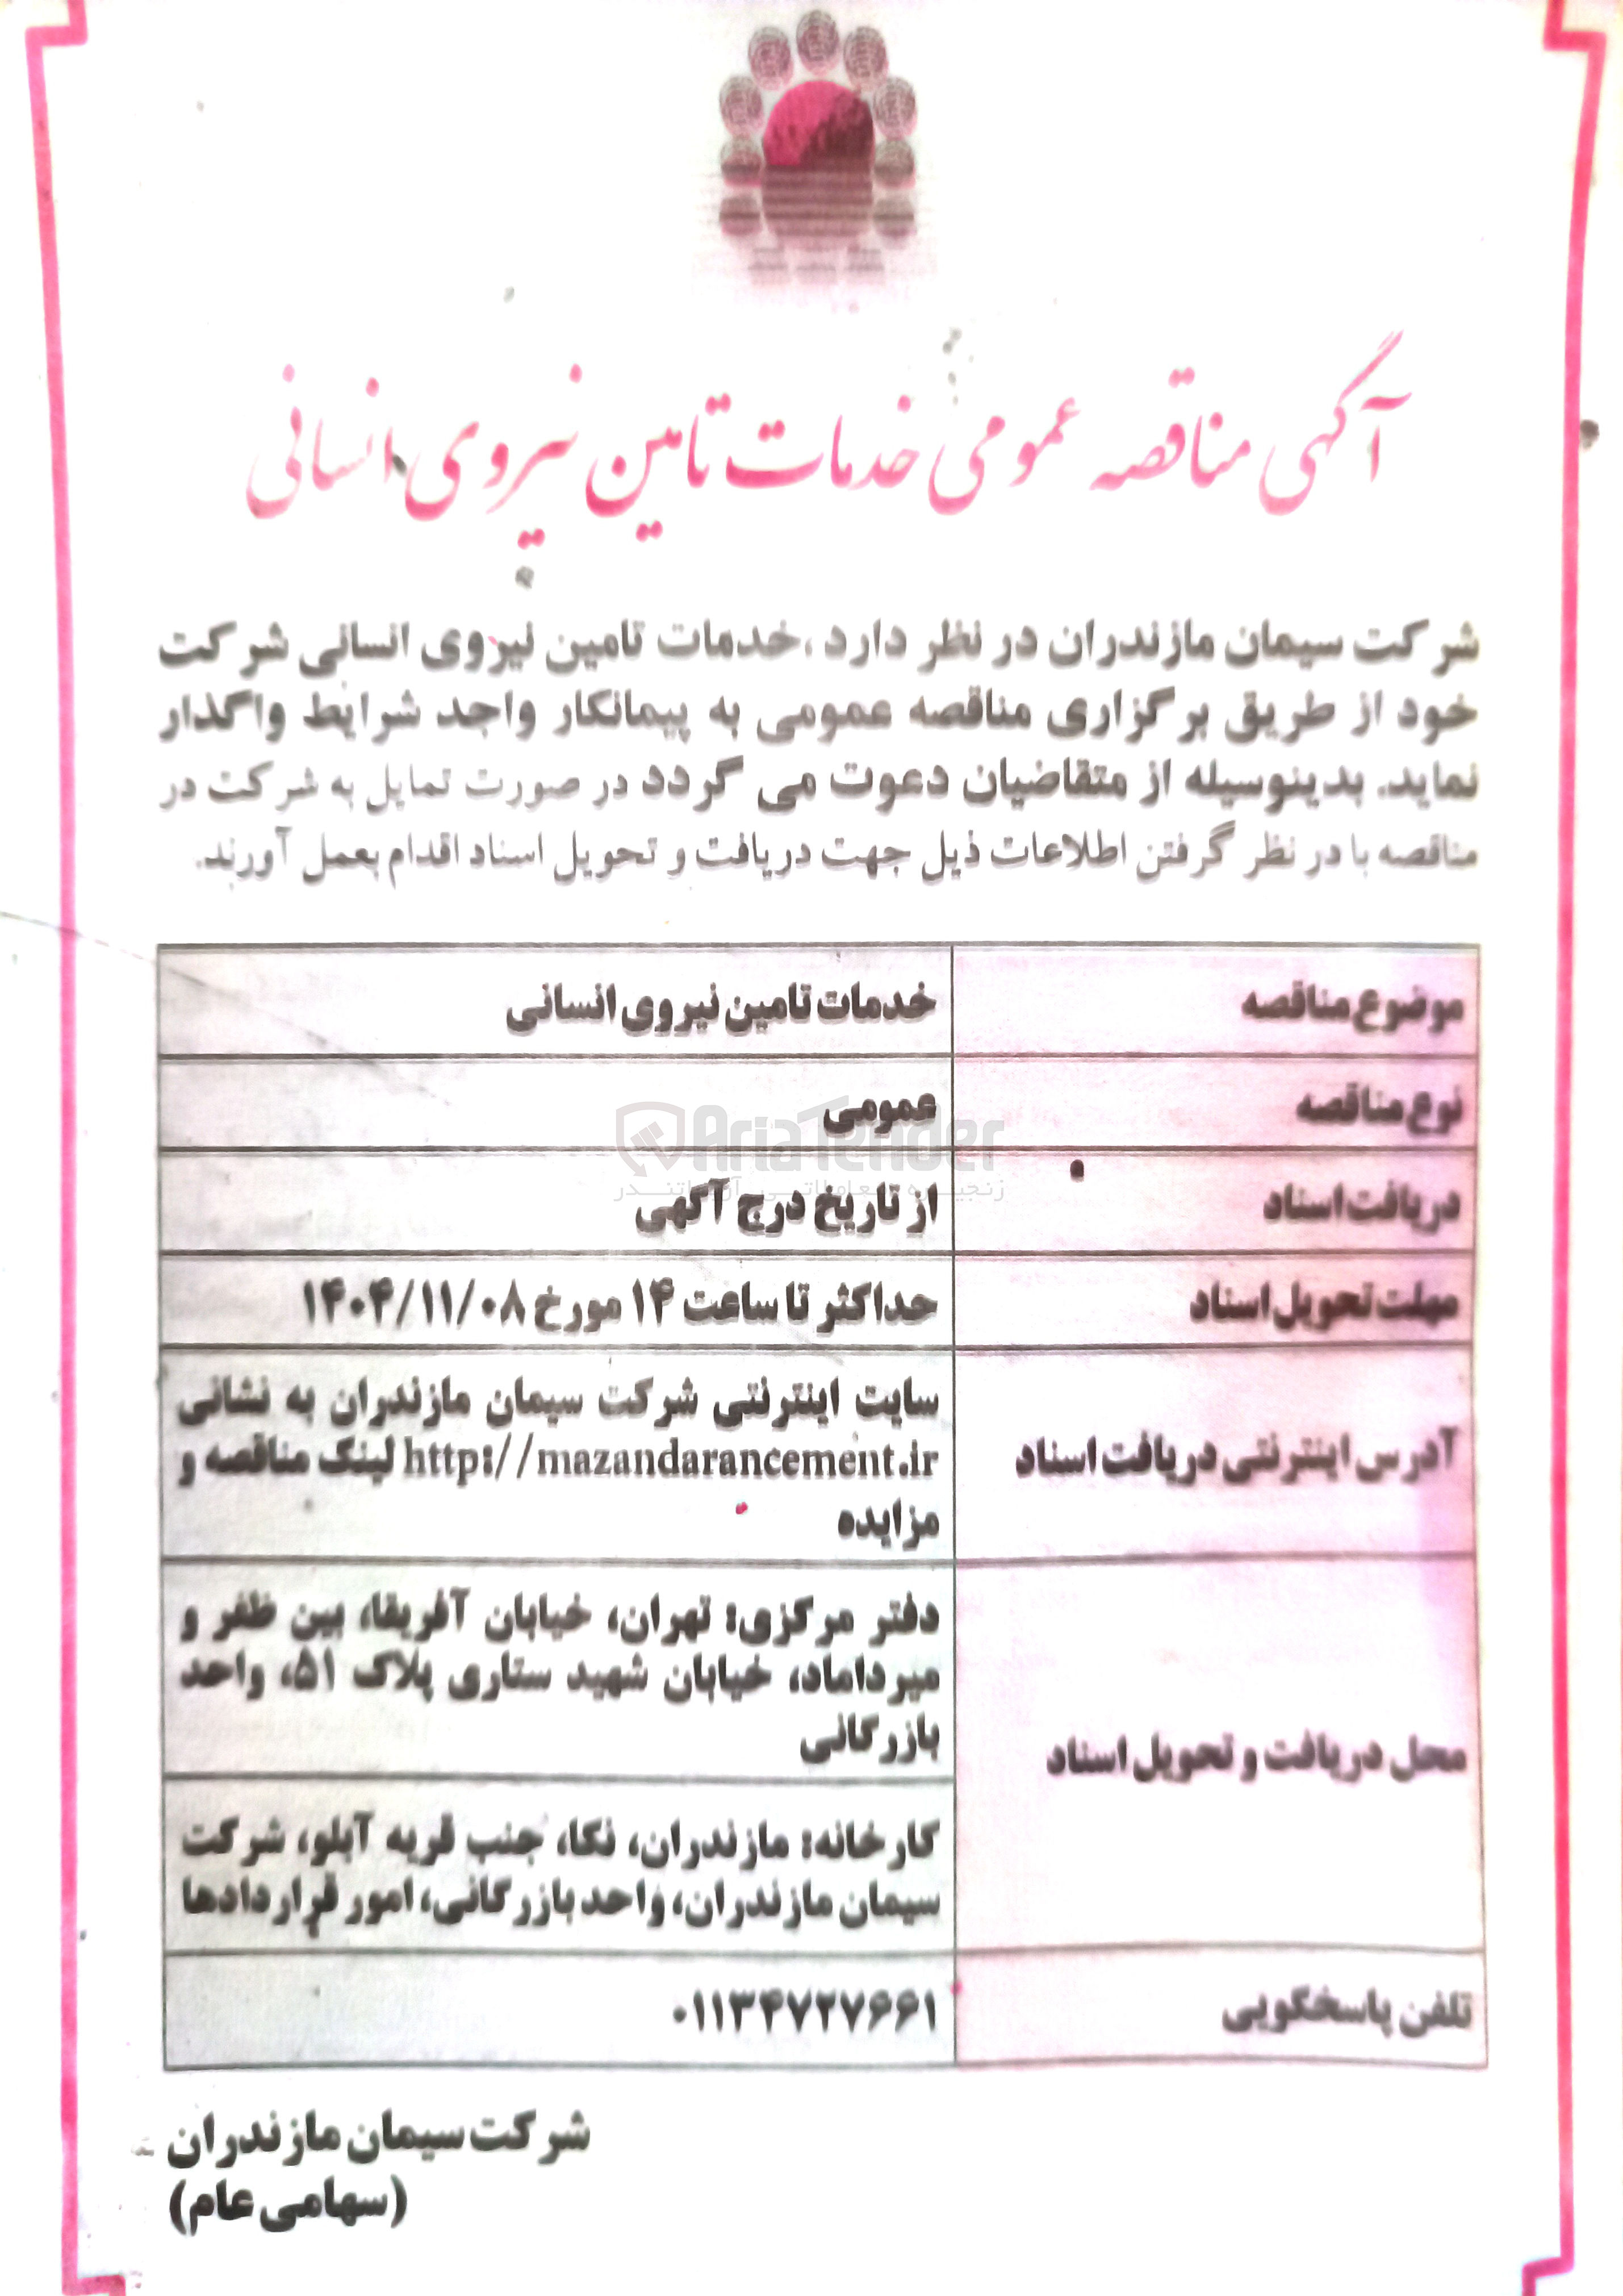 آگهی مناقصه عمومی خدمات تامین نیروی انسانی
شرکت سیمان مازندران در نظر دارد ،خدمات تامین نیروی انسانی شرکت
خود از طریق برگزاری مناقصه عمومی به پیمانکار واجد شرایط واگذار
نماید. بدینوسیله از متقاضیان دعوت می گردد در صورت تمایل به شرکت در
مناقصه با در نظر گرفتن اطلاعات ذیل جهت دریافت و تحویل اسناد اقدام بعمل آورند.
موضوع مناقصه
خدمات تامین نیروی انسانی
نوع مناقصه
عمومی
AriaTender
دریافت اسناد
از تاریخ درج آگهی
مهلت تحویل اسناد
حداکثر تا ساعت ۱۴ مورخ ۱۴۰۴/۱۱/۰۸
آدرس اینترنتی دریافت اسناد
سایت اینترنتی شرکت سیمان مازندران به نشانی
http://mazandarancement.ir لینک مناقصه و
مزایده
محل دریافت و تحویل اسناد
دفتر مرکزی: تهران، خیابان آفریقا، بین ظفر و
میرداماد، خیابان شهید ستاری پلاک ۵۱، واحد
بازرگانی
کارخانه: مازندران، نکا، جنب قریه آبلو، شرکت
سیمان مازندران، واحد بازرگانی، امور قراردادها
تلفن پاسخگویی
۰۱۱۳۴۷۲۷۶۶۱
شرکت سیمان مازندران
(سهامی عام)